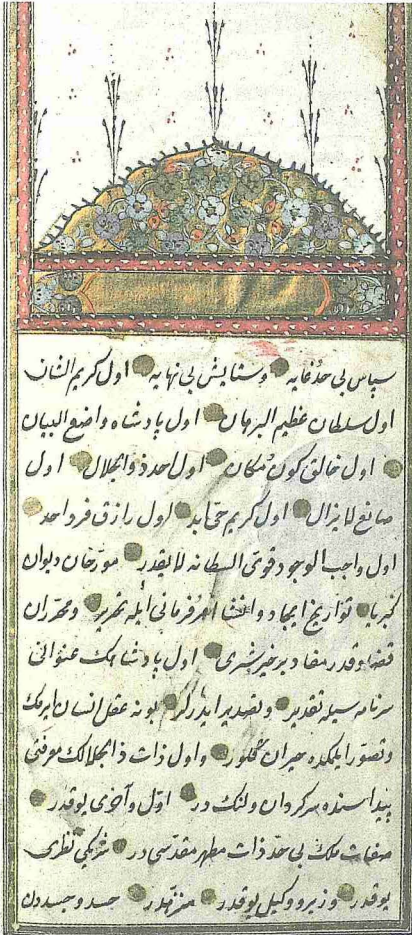 سپاس بی حد و غایه و ستایش بی نهایه اول کریم الشان
اول سلطان عظیم البرهان اول پادشاه واضع البیان
اول خالق کون و مکان اول احد ذو الجلال اول
صانع لا یزال اول کریم حی ابد اول رازق فرد احد
اول واجب الوجود قوی السلطانه لایقدر مورخان دیوان
کبریا تواریخ ایجاد و انشا امر فرمانی ایله تحریر و محرران
قضا و قدر مفاد بر خیر شری اول پادشاهک عنوانی
سرنامه سیله تقدیر و تصدیر ایدرلر بونه عقل انسان ایرمک
و تصور ایلمکده حیران کلور و اول ذات ذا الجلالک معرفتی
بیداسنده سرکردان ولنک در اول و آخری یوقدر
صفات ملک بی حد ذات مطهر مقدسی در شریکی نظری
یوقدر وزیر و وکیل یوقدر منزهدر حسد و جسددن